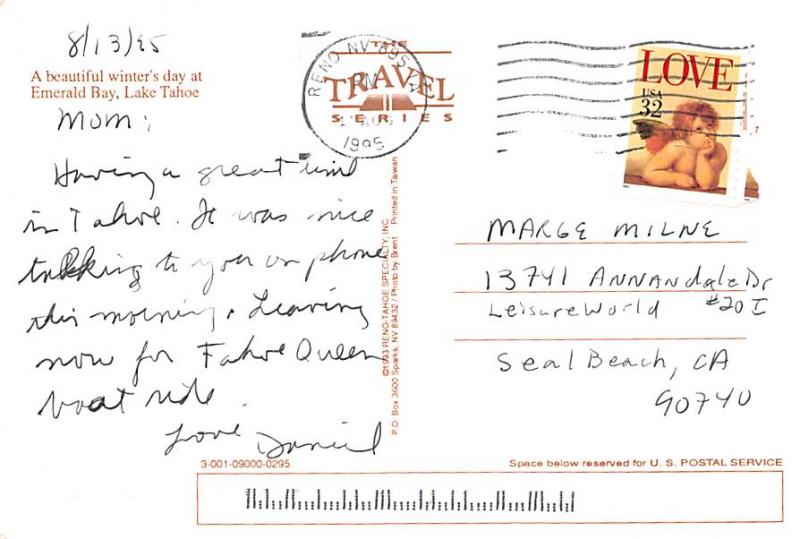 8/13/95
A beautiful winter's day at
Emerald Bay, Lake Tahoe
Mom:
Having a great time
in Tahoe. It was nice
talking to you on phone
this morning. Leaving
now for Tahoe Queen
boat ride.
Love Daniel
3-001-09000-0295
THE
TRAVEL
SERIES
RENO NV 895
PM
1995
©1993 RENO-TAHOE SPECIALTY, INC
P.O. Box 3600 Sparks, NV 89432 / Photo by Brent Printed in Taiwan
LOVE
USA
32
MARGE MILNE
13741 ANNANdale Dr
LeisureWorld #20 I
Seal Beach, CA
90740
Space below reserved for U.S. POSTAL SERVICE